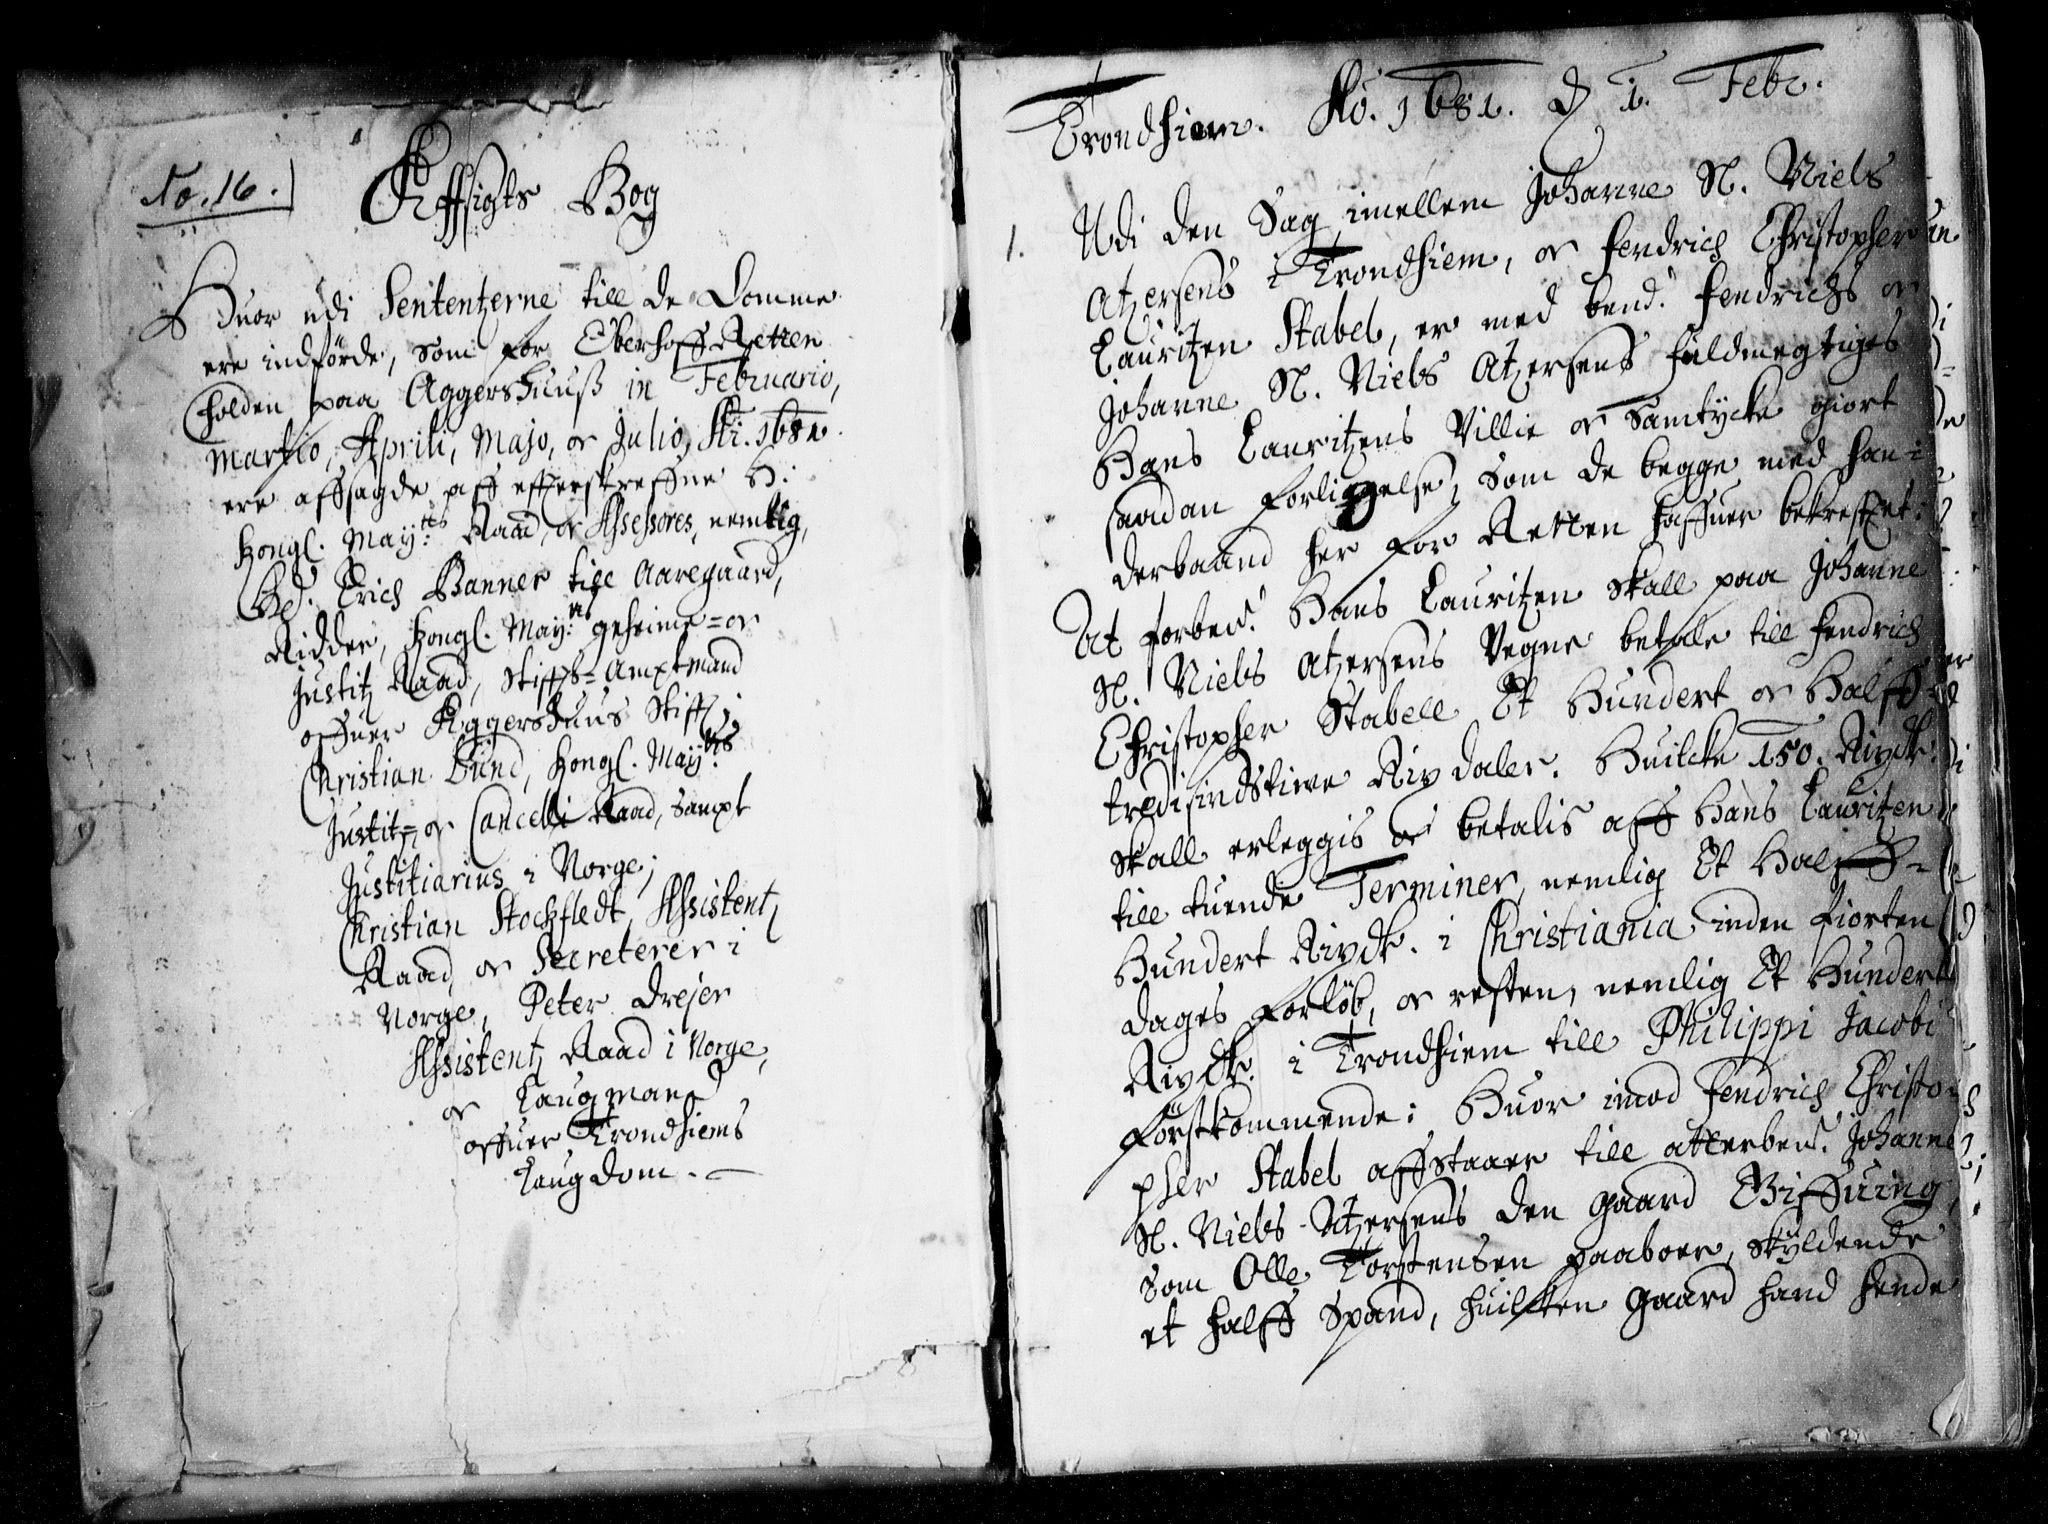 No. 16.
Affsigts Bog
Huor udi Sententzerne till de Domme
ere indførde, som for Ofverhoff Retten
holden paa Aggershuuss in Februario,
Martio, Aprili, Majo, oc Julio, Ao. 1681.
ere affsagde aff efterskreffne H:
Kongl. May.ts Raad, oc Assessores, nemlig,
Hr. Erich Banner till Aaregaard,
Ridder, Kongl. May.ts geheime= oc
Justitz Raad, Stiffts=Amptmand
offuer Aggershuus Stifft;
Christian Lund, Kongl. May.ts
Justitz= oc Cancelli Raad, sampt
Justitiarius i Norge;
Christian Stochfledt, Assistentz
Raad, oc Secreterer i
Norge, Peter Drejer
Assistentz Raad i Norge,
oc Laugmand
offuer Trondhiems
Laugdom.
Trondhiem. Ao. 1681. D 1. Febr.
1. Udi den Sag imellem Johanne Sl. Niels
Atzersens i Trondhiem, oc Fendrich Christopher
Lauritzen Stabel, er med bend. Fendrichs oc
Johanne Sl. Niels Atzersens fuldmegtiges
Hans Lauritzens Villie oc Samtycke giort
saadan Forligelse, som de begge med Han-
derbaand her for Retten haffuer bekrefftet:
At forbend. Hans Lauritzen skall paa Johanne
Sl. Niels Atzersens Vegne betale till Fendrich
Christopher Stabell Et Hundert oc Halff-
tredisindstiuve Rixdaler. Huilcke 150. Rixdr.
skall erleggis oc betalis aff Hans Lauritzen
till tuende Terminer, nemlig Et Halff-
Hundert Rixdr. i Christiania inden fiorten
dages forløb, oc resten, nemlig Et Hundert
Rixdr. i Trondhiem till Philippi Jacobi
førstkommende: Huor imod Fendrich Christo-
pher Stabel affstaaer till atterbend. Johanne
Sl. Niels Atzersens den gaard Biffuing,
som Olle Torstensen paaboer, skyldende
et halff Spand, huilcken gaard hand hende